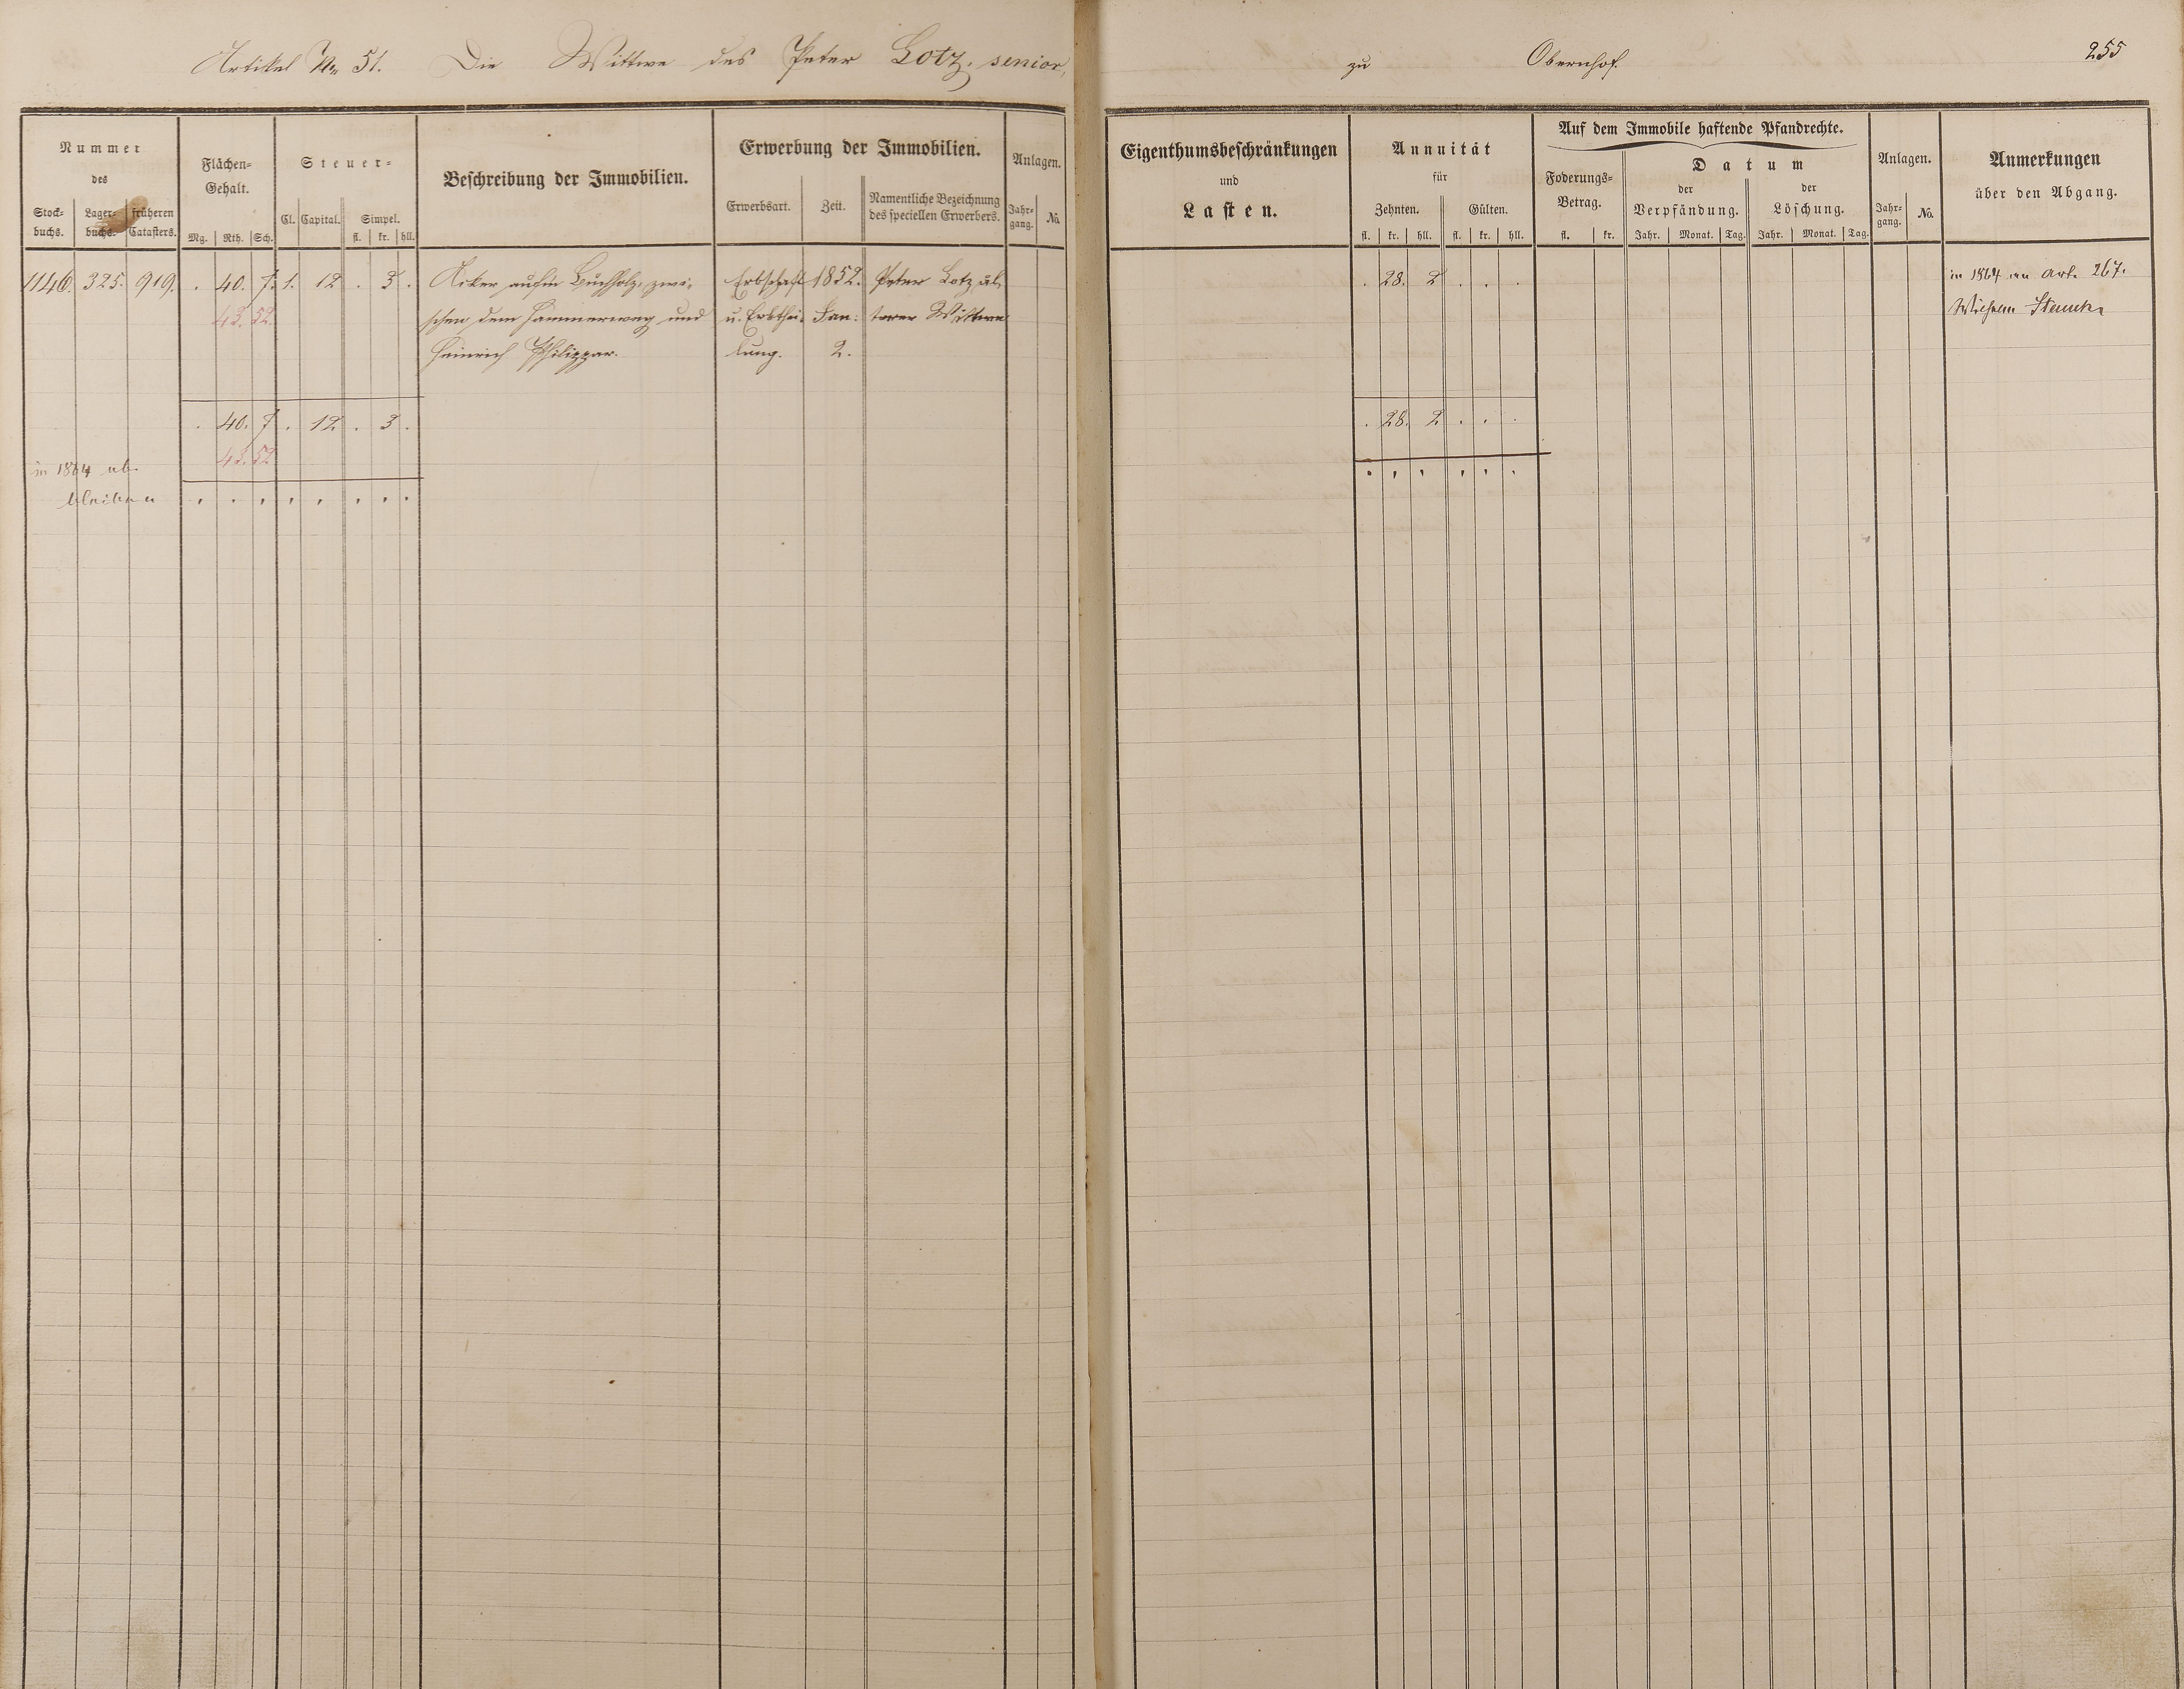 Artikel No 51. Die Wittwe des Peter Lotz, senior, zu Obernhof. 255
Nummer des
Stock-buchs. Lager-buchs. früheren Catasters.
Flächen-Gehalt.
Mg. Rth. Sch.
Steuer-
Cl. Capital. Simpel.
fl. kr. hll.
Beschreibung der Immobilien.
Erwerbung der Immobilien.
Erwerbsart. Zeit. Namentliche Bezeichnung des speciellen Erwerbers.
Anlagen.
Jahr-gang. No.
Eigenthumsbeschränkungen
und
Lasten.
Annuität
für
Zehnten. Gülten.
fl. kr. hll. fl. kr. hll.
Auf dem Immobile haftende Pfandrechte.
Foderungs-Betrag.
fl. kr.
Datum
der Verpfändung. der Löschung.
Jahr. Monat. Tag. Jahr. Monat. Tag.
Anlagen.
Jahr-gang. No.
Anmerkungen
über den Abgang.
1146. 325. 919. . 40. 7. 1. 12 . 3 . Acker aufm Buchholz, zwi- Erbschaft 1852. Peter Lotz, äl- . 28. 2 . . . in 1864 an Art. 267.
43. 52 schen dem Hammerweg und u. Erbthei- Jan: terer Wittwe Wilhelm
Heinrich Philippar. lung. 2.
. 40. 7 . 12 . 3 . . 28. 2 . . .
43. 52
in 1864 ab.
bleiben